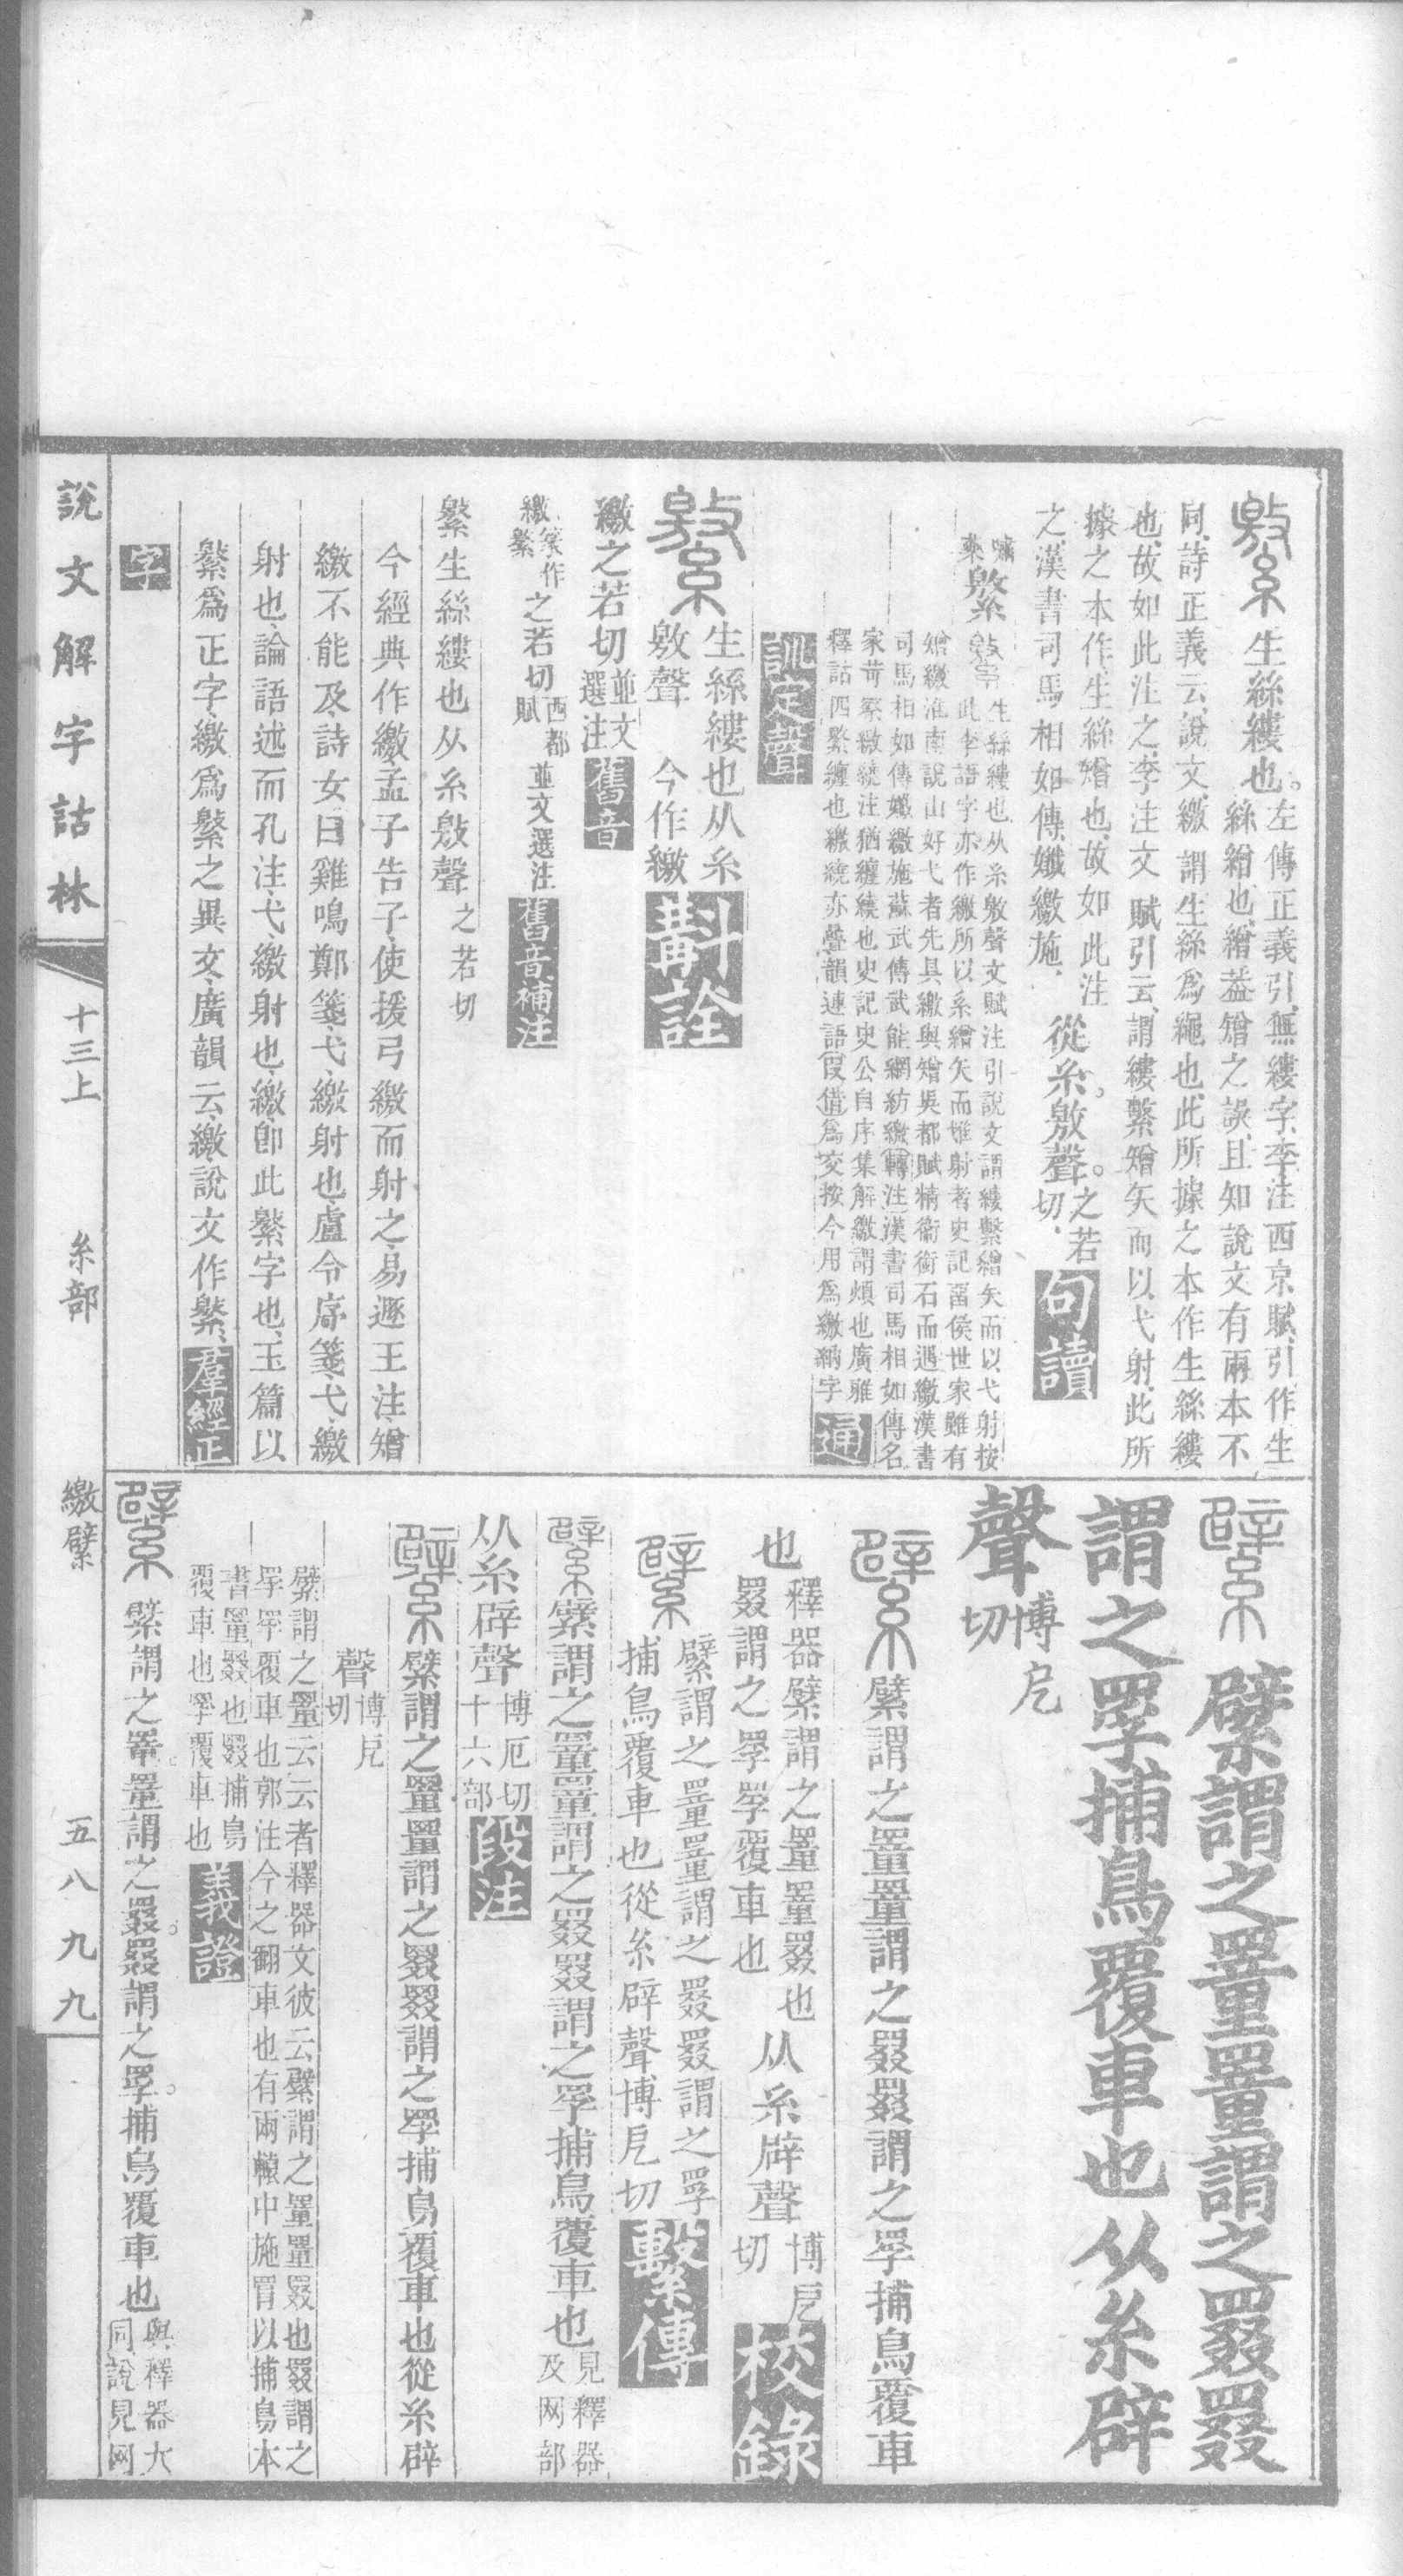 繳 生絲縷也。左傳正義引,無縷字,李注西京賦,引作生
絲繒也,繒葢矰之誤,且知說文有兩本不
同,詩正義云,說文繳,謂生絲爲繩也,此所據之本作生絲縷
也,故如此注之,李注文賦引云,謂縷繫矰矢而以弋射,此所
據之本作,生絲矰也,故如此注
之,漢書司馬相如傳,孅繳施, 從糸,敫聲。之若切, 句讀
繁 生絲縷也从糸敫聲文賦注引說文謂縷繫繒矢而以弋射按
此李語字亦作繳所以系繒矢而堆射者史記畱侯世家雖有
矰繳淮南說山好弋者先具繳與矰吳都賦精衞銜石而遇繳漢書
司馬相如傳孅繳施蘇武傳武能網紡繳轉注漢書司馬相如傳名
家苛察繳繞注猶纏繞也史記史公自序集解繳謂煩也廣雅
釋詁四繁纏也繳繞亦聲韻連語叚借爲交按今用爲繳納字 通
訓定聲
繁 生絲縷也从糸
敫聲 今作繳 斠詮
繳之若切並文選注 舊音
繳 之若切西都賦並文選注 舊音補注
繁生絲縷也从糸敫聲之若切
今經典作繳,孟子告子,使援弓繳而射之,易遯王注,矰
繳不能及,詩女曰雞鳴鄭箋,弋,繳射也,盧令序箋,弋,繳
射也,論語述而孔注,弋,繳射也,繳,卽此繁字也,玉篇以
繁爲正字,繳爲繁之異文,廣韻云,繳說文作繁, 羣經正
字
繴 繴謂之罿罿謂之罬罬
謂之罦捕鳥覆車也从糸辟
聲博戹切
繴 繴謂之罿罿謂之罬罬謂之罦捕鳥覆車
也 釋器繴謂之罿罿罬也
罬謂之罦罦覆車也 从糸辟聲 博戹切 校錄
繴 繴謂之罿罿謂之罬罬謂之罦
捕鳥覆車也從糸辟聲博戹切 繫傳
繴 繴謂之罿罿謂之罬罬謂之罦捕鳥覆車也見釋器及网部
从糸辟聲博厄切十六部 段注
繴 繴謂之罿罿謂之罬罬謂之罦捕鳥覆車也從糸辟
聲博戹切
繴謂之罿云云者釋器文彼云繴謂之罿罿罬也罬謂之
罦罦覆車也郭注今之翻車也有兩轅中施罥以捕鳥本
書罿罬也罬捕鳥
覆車也罦覆車也 義證
繴 繴謂之罿。罿謂之罬。罬謂之罦。捕鳥覆車也與釋器大
同,說見网
說文解字詁林 十三上 糸部 繳繴 五八九九